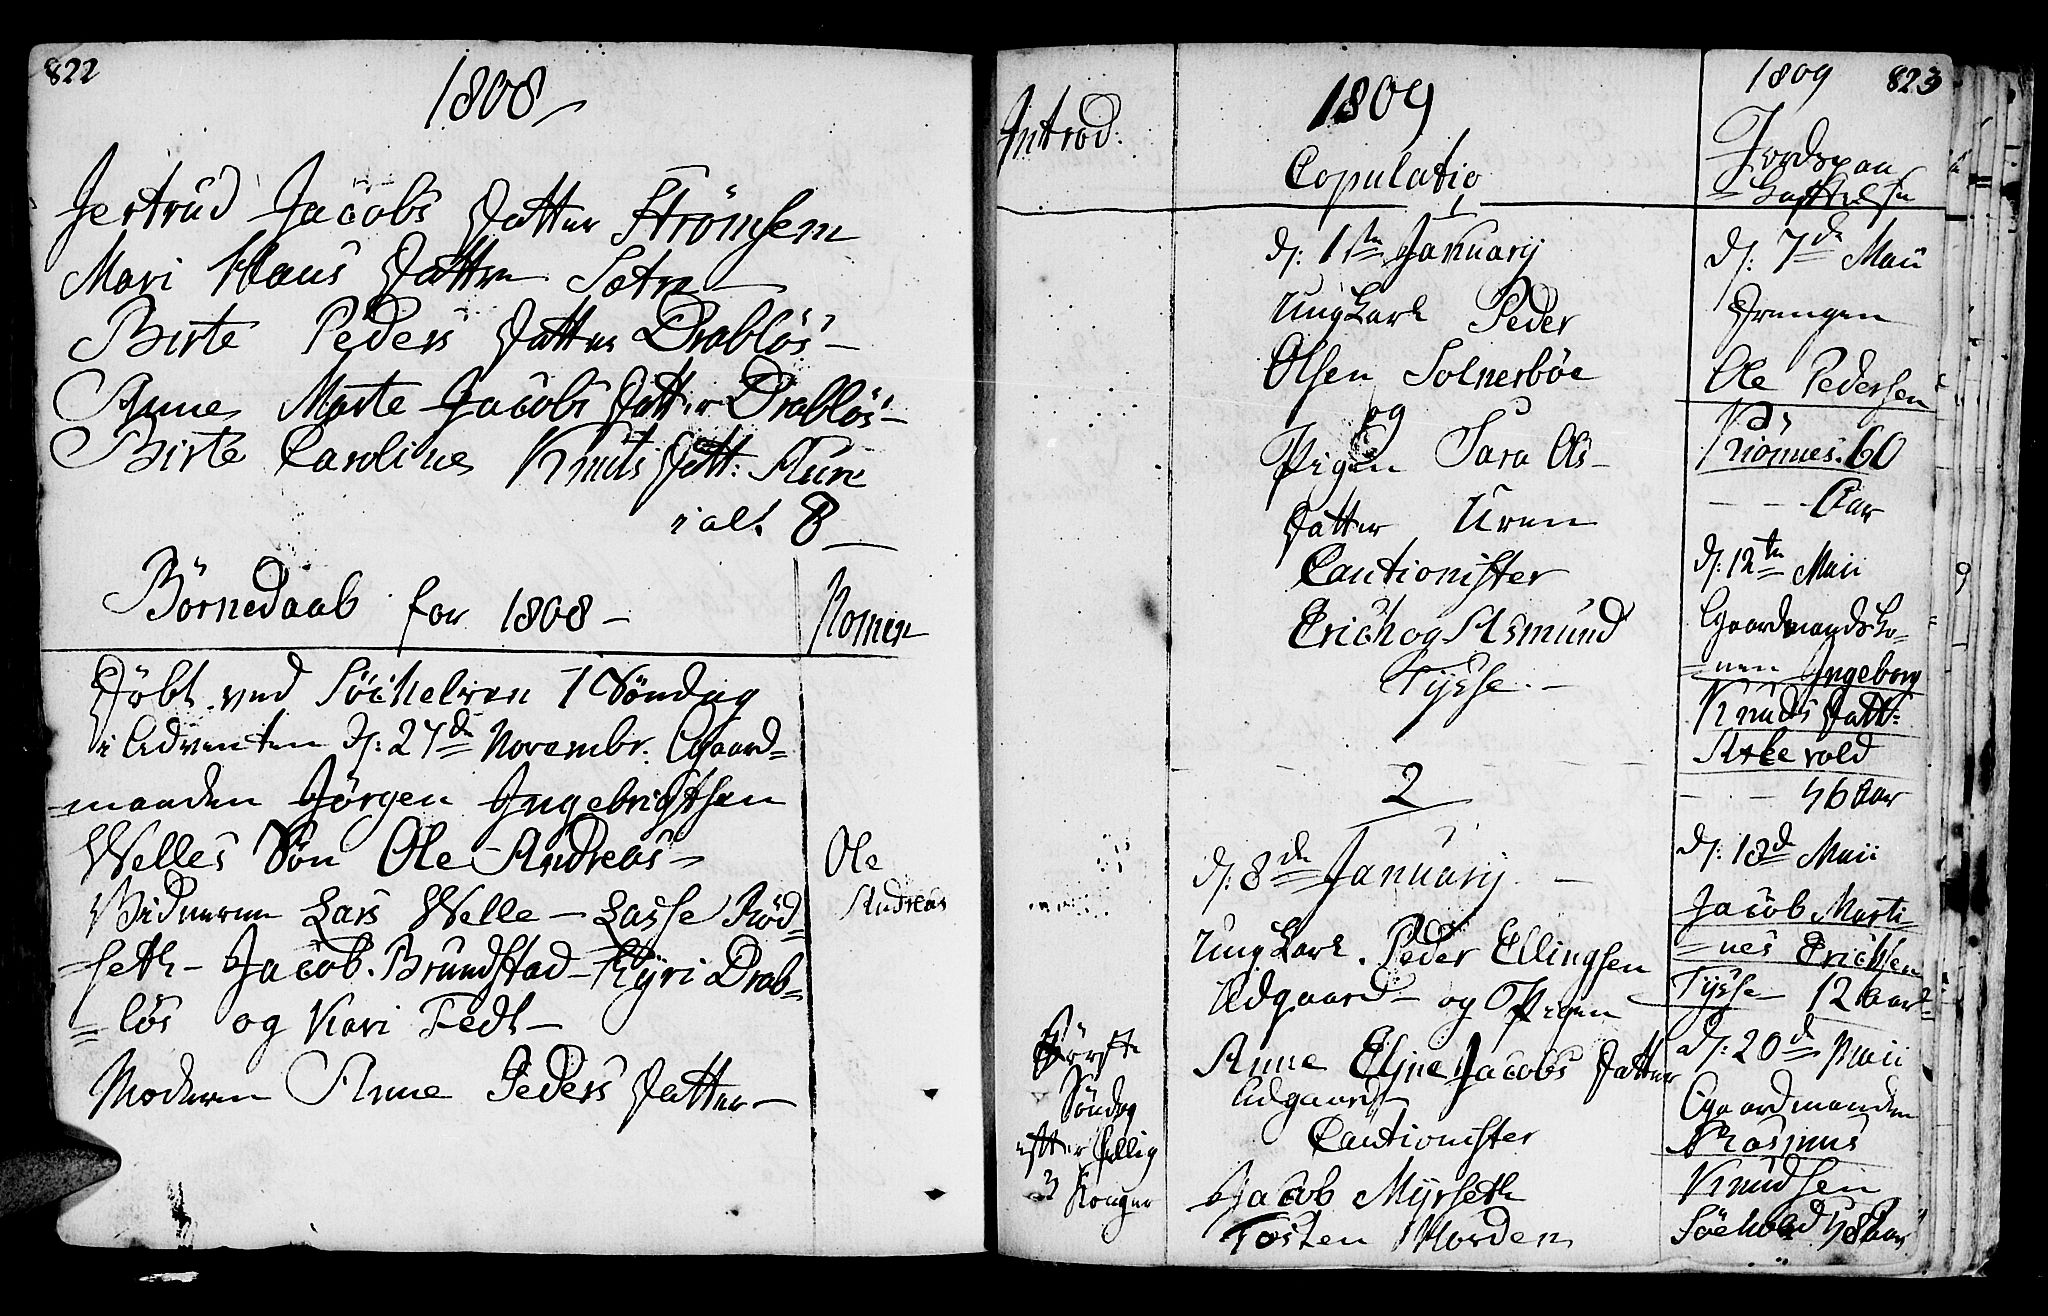 822
1808
Jertrud Jacobs Datter Strömsem
Mari Klaus Datter Sætre
Birte Peders Datter Drabløs
Anne Marte Jacobs Datter Drabløs
Birte Caroline Knuts Datt: Aure
i alt 8
Börnedaab for 1808
Nomen
Döbt ved Söekelven 1 Söndag
i Adventen d: 27de Novembr. Gaard=
=manden Jörgen Ingebrigtsen
Welles Sön Ole Andreas
Ole
Andreas
Vidneren Lars Welle - Lasse Röd=
=seth - Jacob Brundstad - Kyri Drab=
=løs og Kari Fedt
Moderen Anne Peders Datter
Introd:
Förste
Söndag
efter hellig
3 Konger
1809
Copulatio
1
d: 1ste January
Ung Karl Peder
Olsen Solnerböe
og
Pigen Sara Ols
Datter Uren
Cautionister
Erich og Asmund
Tysse
2
d: 8de January
Ung Karl Peder Ellingsen
Ødgaard og Pigen
Anne Eline Jacobs Datter
Ødgaard
Cautionister
Jacob Myrseth
Tosten Horden
1809 823
Jordspaa
=kastelse
d: 7de Maii
Drengen
Ole Pedersen
60
Aar
d: 12te Maii
Gaardmands Ko=
=nen Ingeborg
Knuds Datt:
56 Aar
d: 18de Maii
Jacob Marti=
=nes Erichsen
Tysse 12 Aar
d: 20de Maii
Gaardmanden
Rasmus
Knudsen
Söeholt 58 Aar